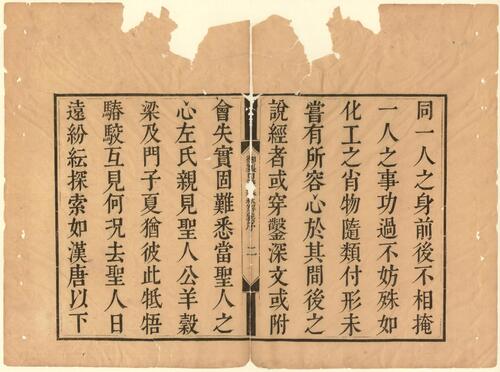 同一人之身前後不相掩
一人之事功過不妨殊如
化工之肖物隨類付形未
嘗有所容心於其間後之
說經者或穿鑿深文或附
二
會失實固難悉當聖人之
心左氏親見聖人公羊穀
梁及門子夏猶彼此牴牾
駁互見何況去聖人日
遠紛紜探索如漢唐以下